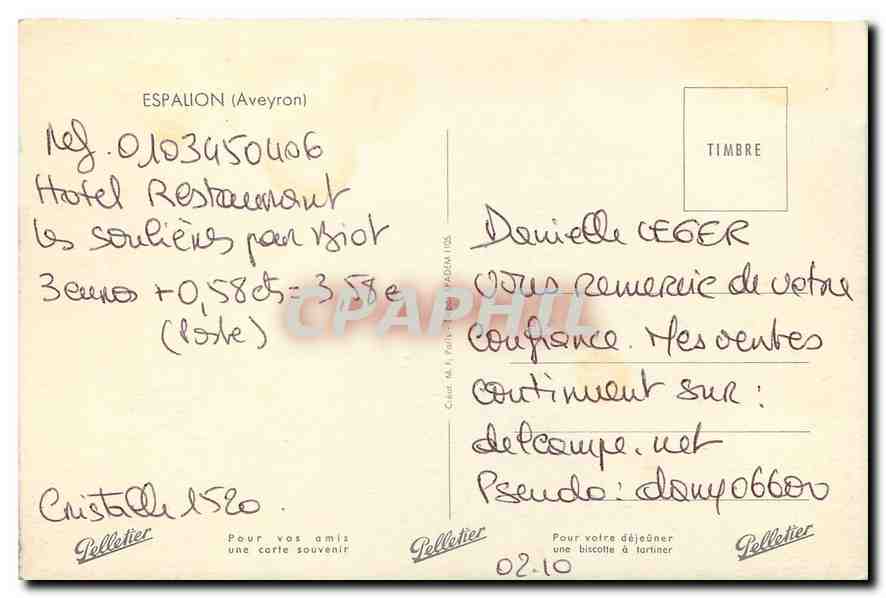 ESPALION (Aveyron)
Ref. 0103450406
Hotel Restaurant
les soulières par Biot
3 euros + 0,58 cts = 3,58 e
(Poste)
Cristalle 1520.
TIMBRE
Danielle LEGER
vous remercie de votre
confiance. Mes ventes
continuent sur :
delcampe.net
Pseudo : dany06600
CPAPHIL
Créat. M. F. Paris - KADEM 1105
Pelletier
Pour vos amis
une carte souvenir
Pelletier
Pour votre déjeûner
une biscotte à tartiner
Pelletier
02.10